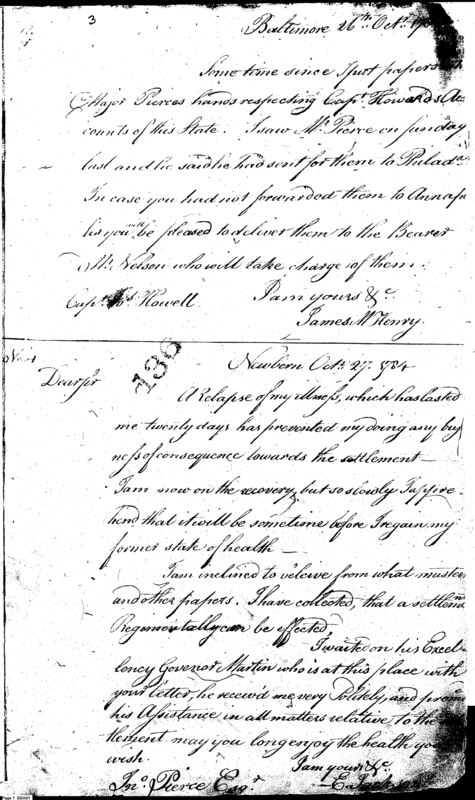 3
Baltimore 26th Octr
Some time since I put papers
Major Pierces hands respecting Capt Howards Ac
counts of this State. I saw Mr. Pierce on sunday
last and he said he had sent for them to Philada
In case you had not forwarded them to Annapo
lis you will be pleased to deliver them to the Bearer
Mr. Nelson who will take charge of them.
Capt Jos. Howell I am yours &c
James McHenry
No. 1
136
Newbern Octr. 27. 1784
Dear Sir
A Relapse of my illness, which has lasted
me twenty days has prevented my doing any busi
ness of consequence towards the settlement —
I am now on the recovery, but so slowly I appre
hend that it will be sometime before I regain my
former state of health —
I am inclined to beleive from what muster
and other papers. I have collected, that a settlemt
Regimentally can be effected,
I waited on his Excel
lency Govenor Martin who is at this place with
your letter, he receiv'd me very Politely, and prom
his Assistance in all matters relative to the
tlement may you long enjoy the health you
wish. I am yours &c
Jno. Pierce Esqr
Page 1 DDA01